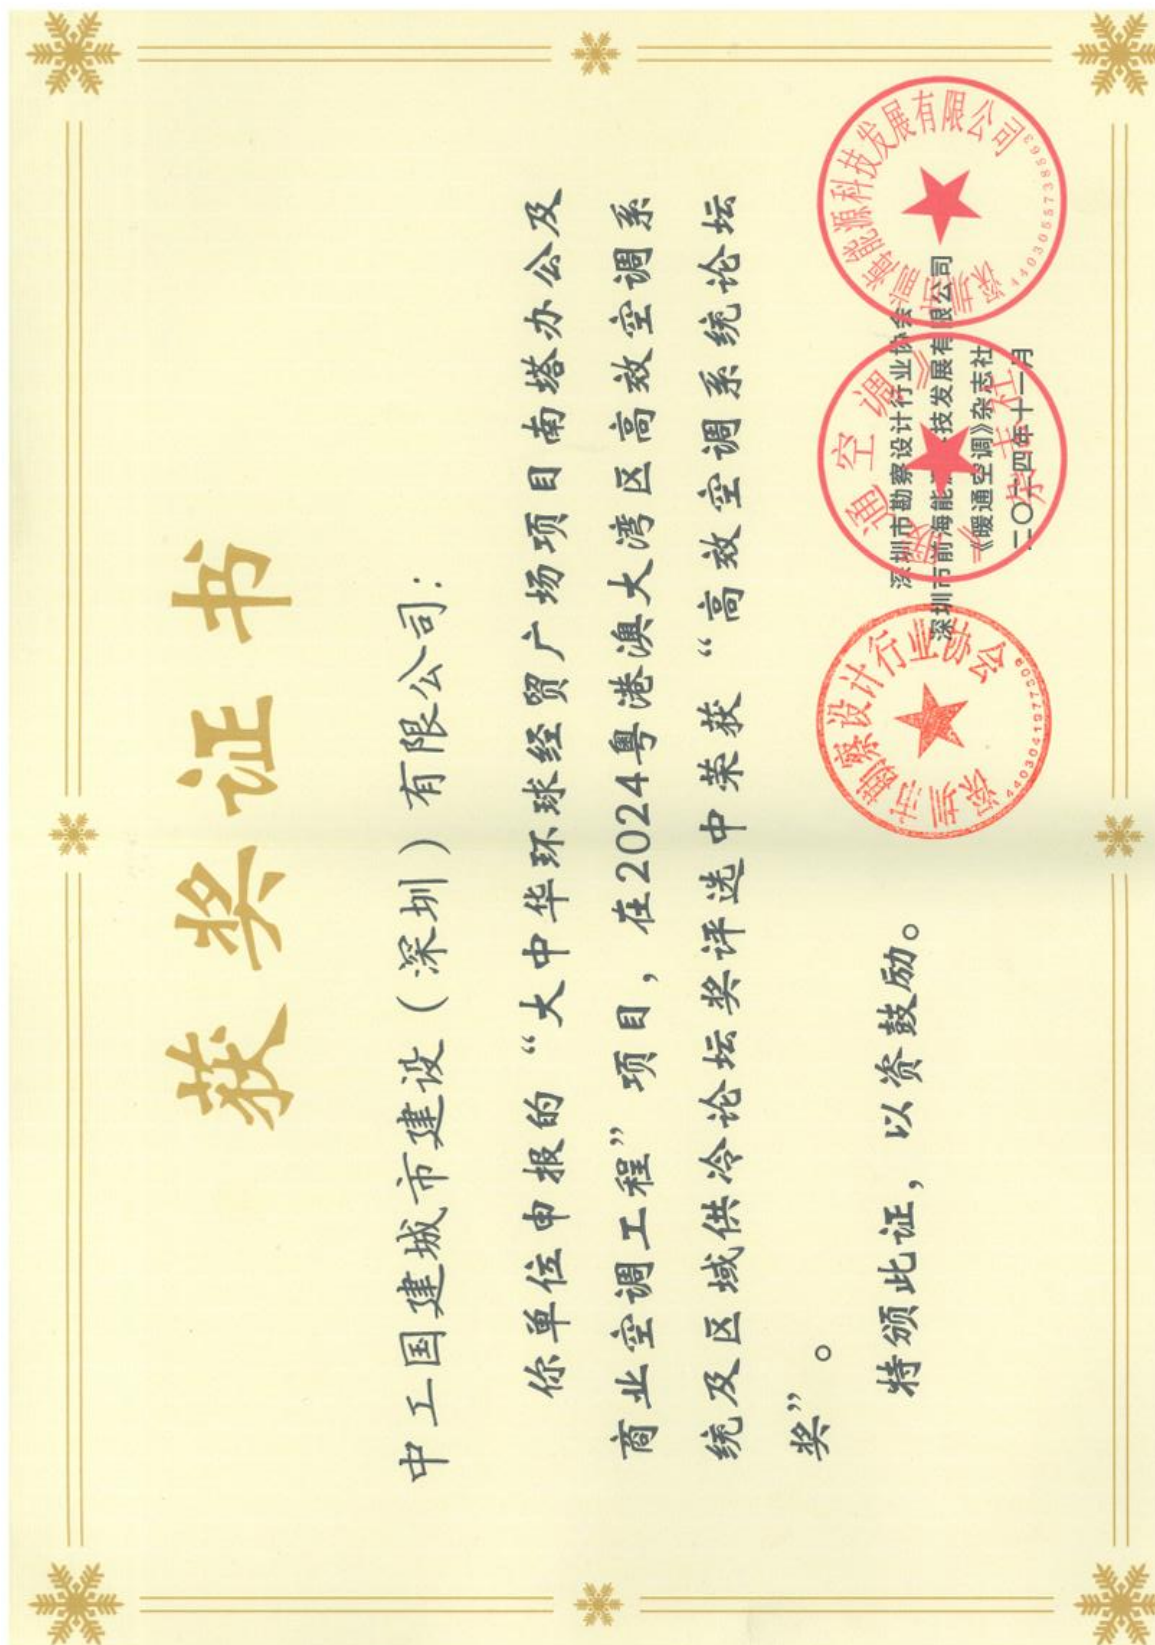 获奖证书
中工国建城市建设（深圳）有限公司：
你单位申报的“大中华环球经贸广场项目南塔办公及
商业空调工程”项目，在2024粤港澳大湾区高效空调系
统及区域供冷论坛奖评选中荣获“高效空调系统论坛
奖”。
特颁此证，以资鼓励。
深圳市勘察设计行业协会
深圳市前海能源科技发展有限公司
《暖通空调》杂志社
二〇二四年十一月
深圳市勘察设计行业协会
4403041977309
《暖通空调》杂志社
深圳市前海能源科技发展有限公司
4403055738563